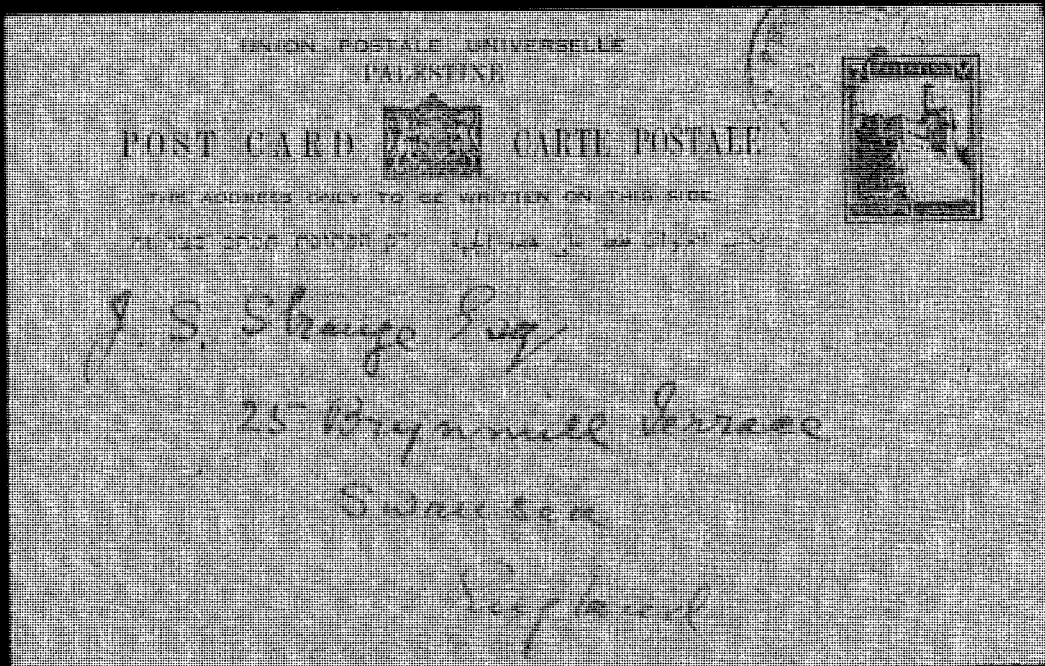 UNION POSTALE UNIVERSELLE
PALESTINE
POST CARD CARTE POSTALE
THE ADDRESS ONLY TO BE WRITTEN ON THIS SIDE.
J. S. Strange Esq,
25 Brynmill Terrace
Swansea
England